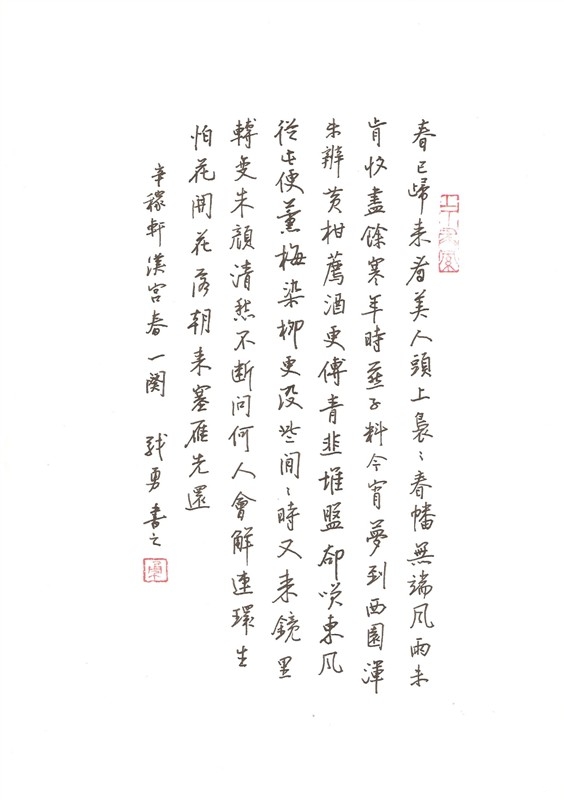 春已歸來看美人頭上裊〻春幡無端風雨未
肯收盡餘寒年時燕子料今宵夢到西園渾
未辦黃柑薦酒更傳青韭堆盤卻笑東風
從此便薰梅染柳更沒些閒〻時又來鏡里
轉變朱顏清愁不斷問何人會解連環生
怕花開花落朝來塞雁先還
辛稼軒漢宮春一闋 勇書之